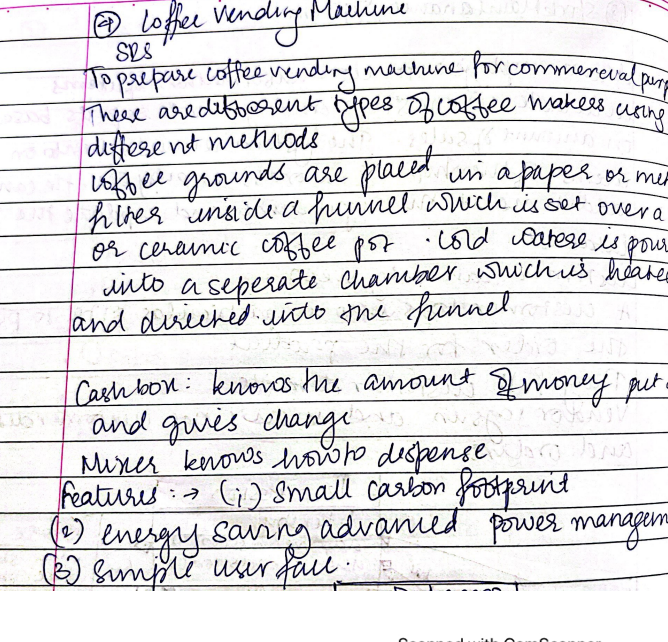 ④ Coffee Vending Machine
SRS
To prepare coffee vending machine for commercial purp
There are different types of coffee makers using
different methods
coffee grounds are placed in a paper or met
filter inside a funnel which is set over a
or ceramic coffee pot . Cold water is pour
into a seperate chamber which is heated
and directed into the funnel
Cash box : knows the amount of money put
and gives change
Mixer knows how to dispense
features :→ (i) Small carbon footprint
(2) energy saving advanced power managem
(3) Simple user face.
Scanned with CamScanner